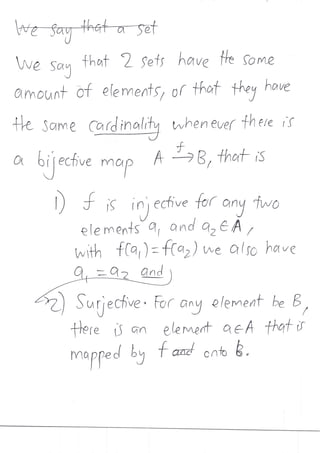 We say that a set
We say that 2 sets have the same
amount of elements, or that they have
the same cardinality whenever there is
a bijective map A →f B, that is
1) f is injective for any two
elements a₁ and a₂ ∈ A,
with f(a₁) = f(a₂) we also have
a₁ = a₂ and
2) Surjective. For any element b∈ B,
there is an element a∈A that is
mapped by f and onto b.